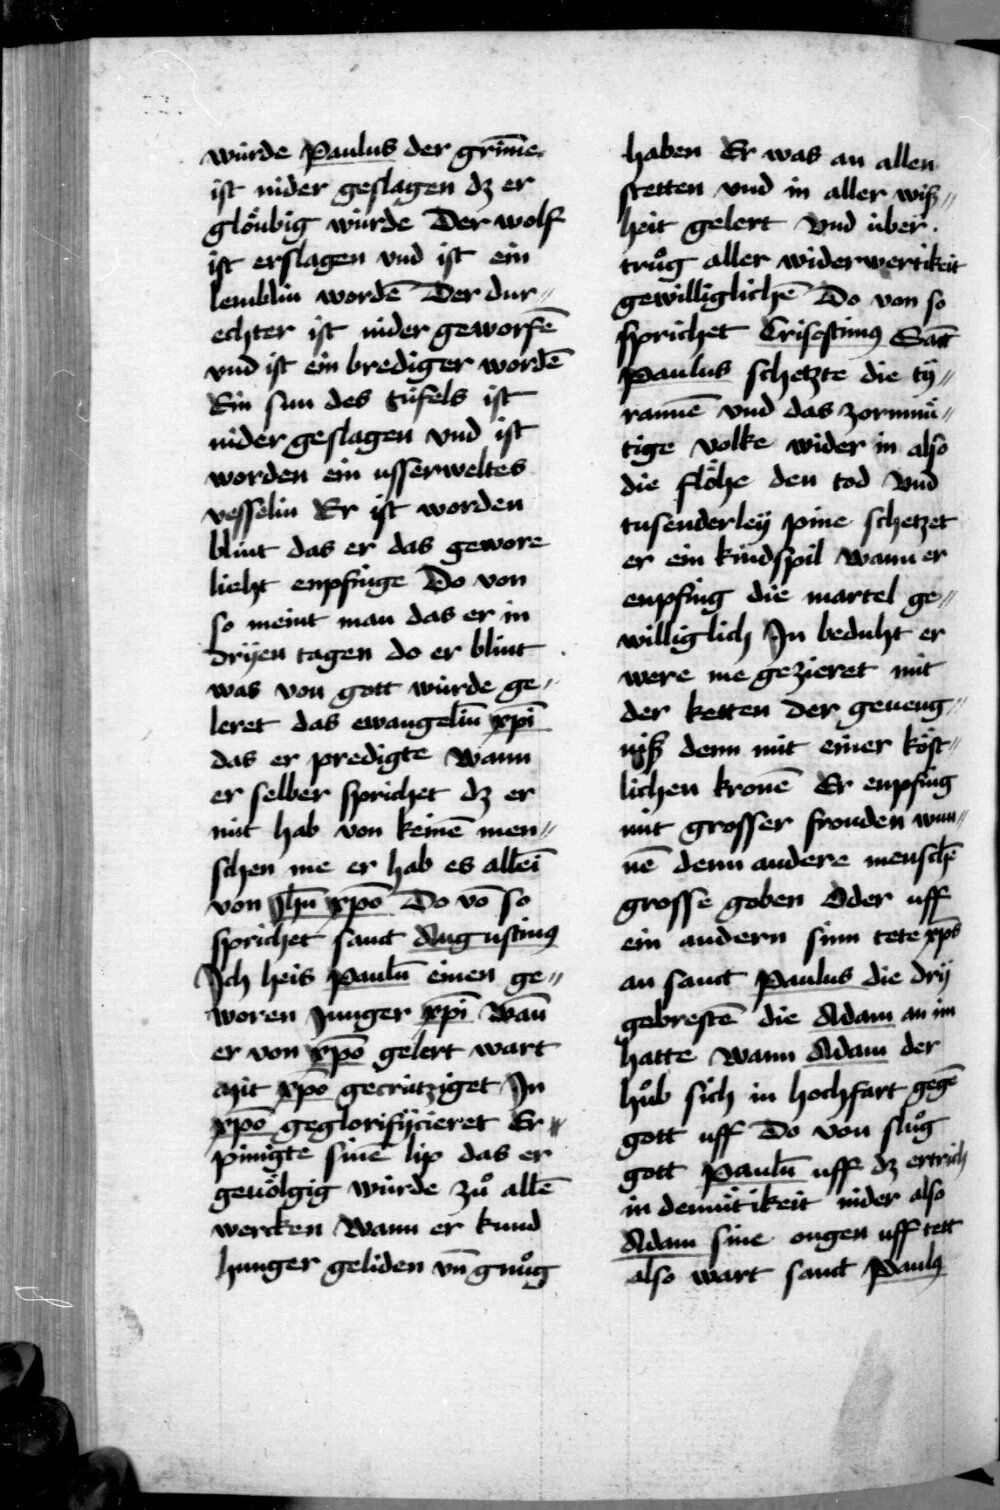 würde Paulus der grim̄e
ist nider geslagen dz er
glöubig würde Der wolf
ist erslagen vnd ist ein
lemblin wordē Der dur〃
echter ist nider geworfē
vnd ist ein brediger wordē
Ein sun des tüfels ist
nider geslagen vnd ist
worden ein usserweltes
vesselin Er ist worden
blint das er das gewore
lieht enpfinge Do von
so meint man das er in
drÿen tagen do er blint
was von gott würde ge〃
leret das ewangeliū xp̄i
das er predigte Wann
er selber sprichet dz er
nüt hab von keinē men〃
schen me er hab es alleī
von Jhū xp̄o Do vō so
sprichet sanct Augustinꝰ
Jch heis Paulū einen ge〃
woren Junger xp̄i Wan̄
er von xp̄o gelert wart
Mit xp̄o gecrütziget Jn
xp̄o geglorifijcieret Er
pinigte sinē lip das er
geuölgig würde zů allē
wercken Wann er kund
hunger geliden vn̄ gnůg
haben Er was an allen
stetten vnd in aller wiß〃
heit gelert Vnd über
trůg aller widerwertikeit
gewilliglichē Do von so
sprichet Crisostimꝰ Sāct
Paulus schetzte die tÿ〃
rannē vnd das zornmü〃
tige volke wider in also
die flöhe den tod Vnd
tusenderleÿ pine schetzet
er ein kindspil Wann er
enpfing die martel ge〃
williglich Jn beduht er
were me gezieret mit
der ketten der geueng〃
niß denn mit einer köst〃
lichen kronē Er enpfing
mit grosser frouden wun〃
nē denn andere menschē
grosse goben Oder uff
ein andern sinn tete xp̄s
an sanct Paulus die drÿ
gebrestē die Adam an im
hatte Wann Adam der
hůb sich in hochfart gegē
gott uff Do von slůg
gott Paulū uff dz ertrich
in demütikeit nider also
Adam sine ougen uff tett
also wart sanct Paulꝰ